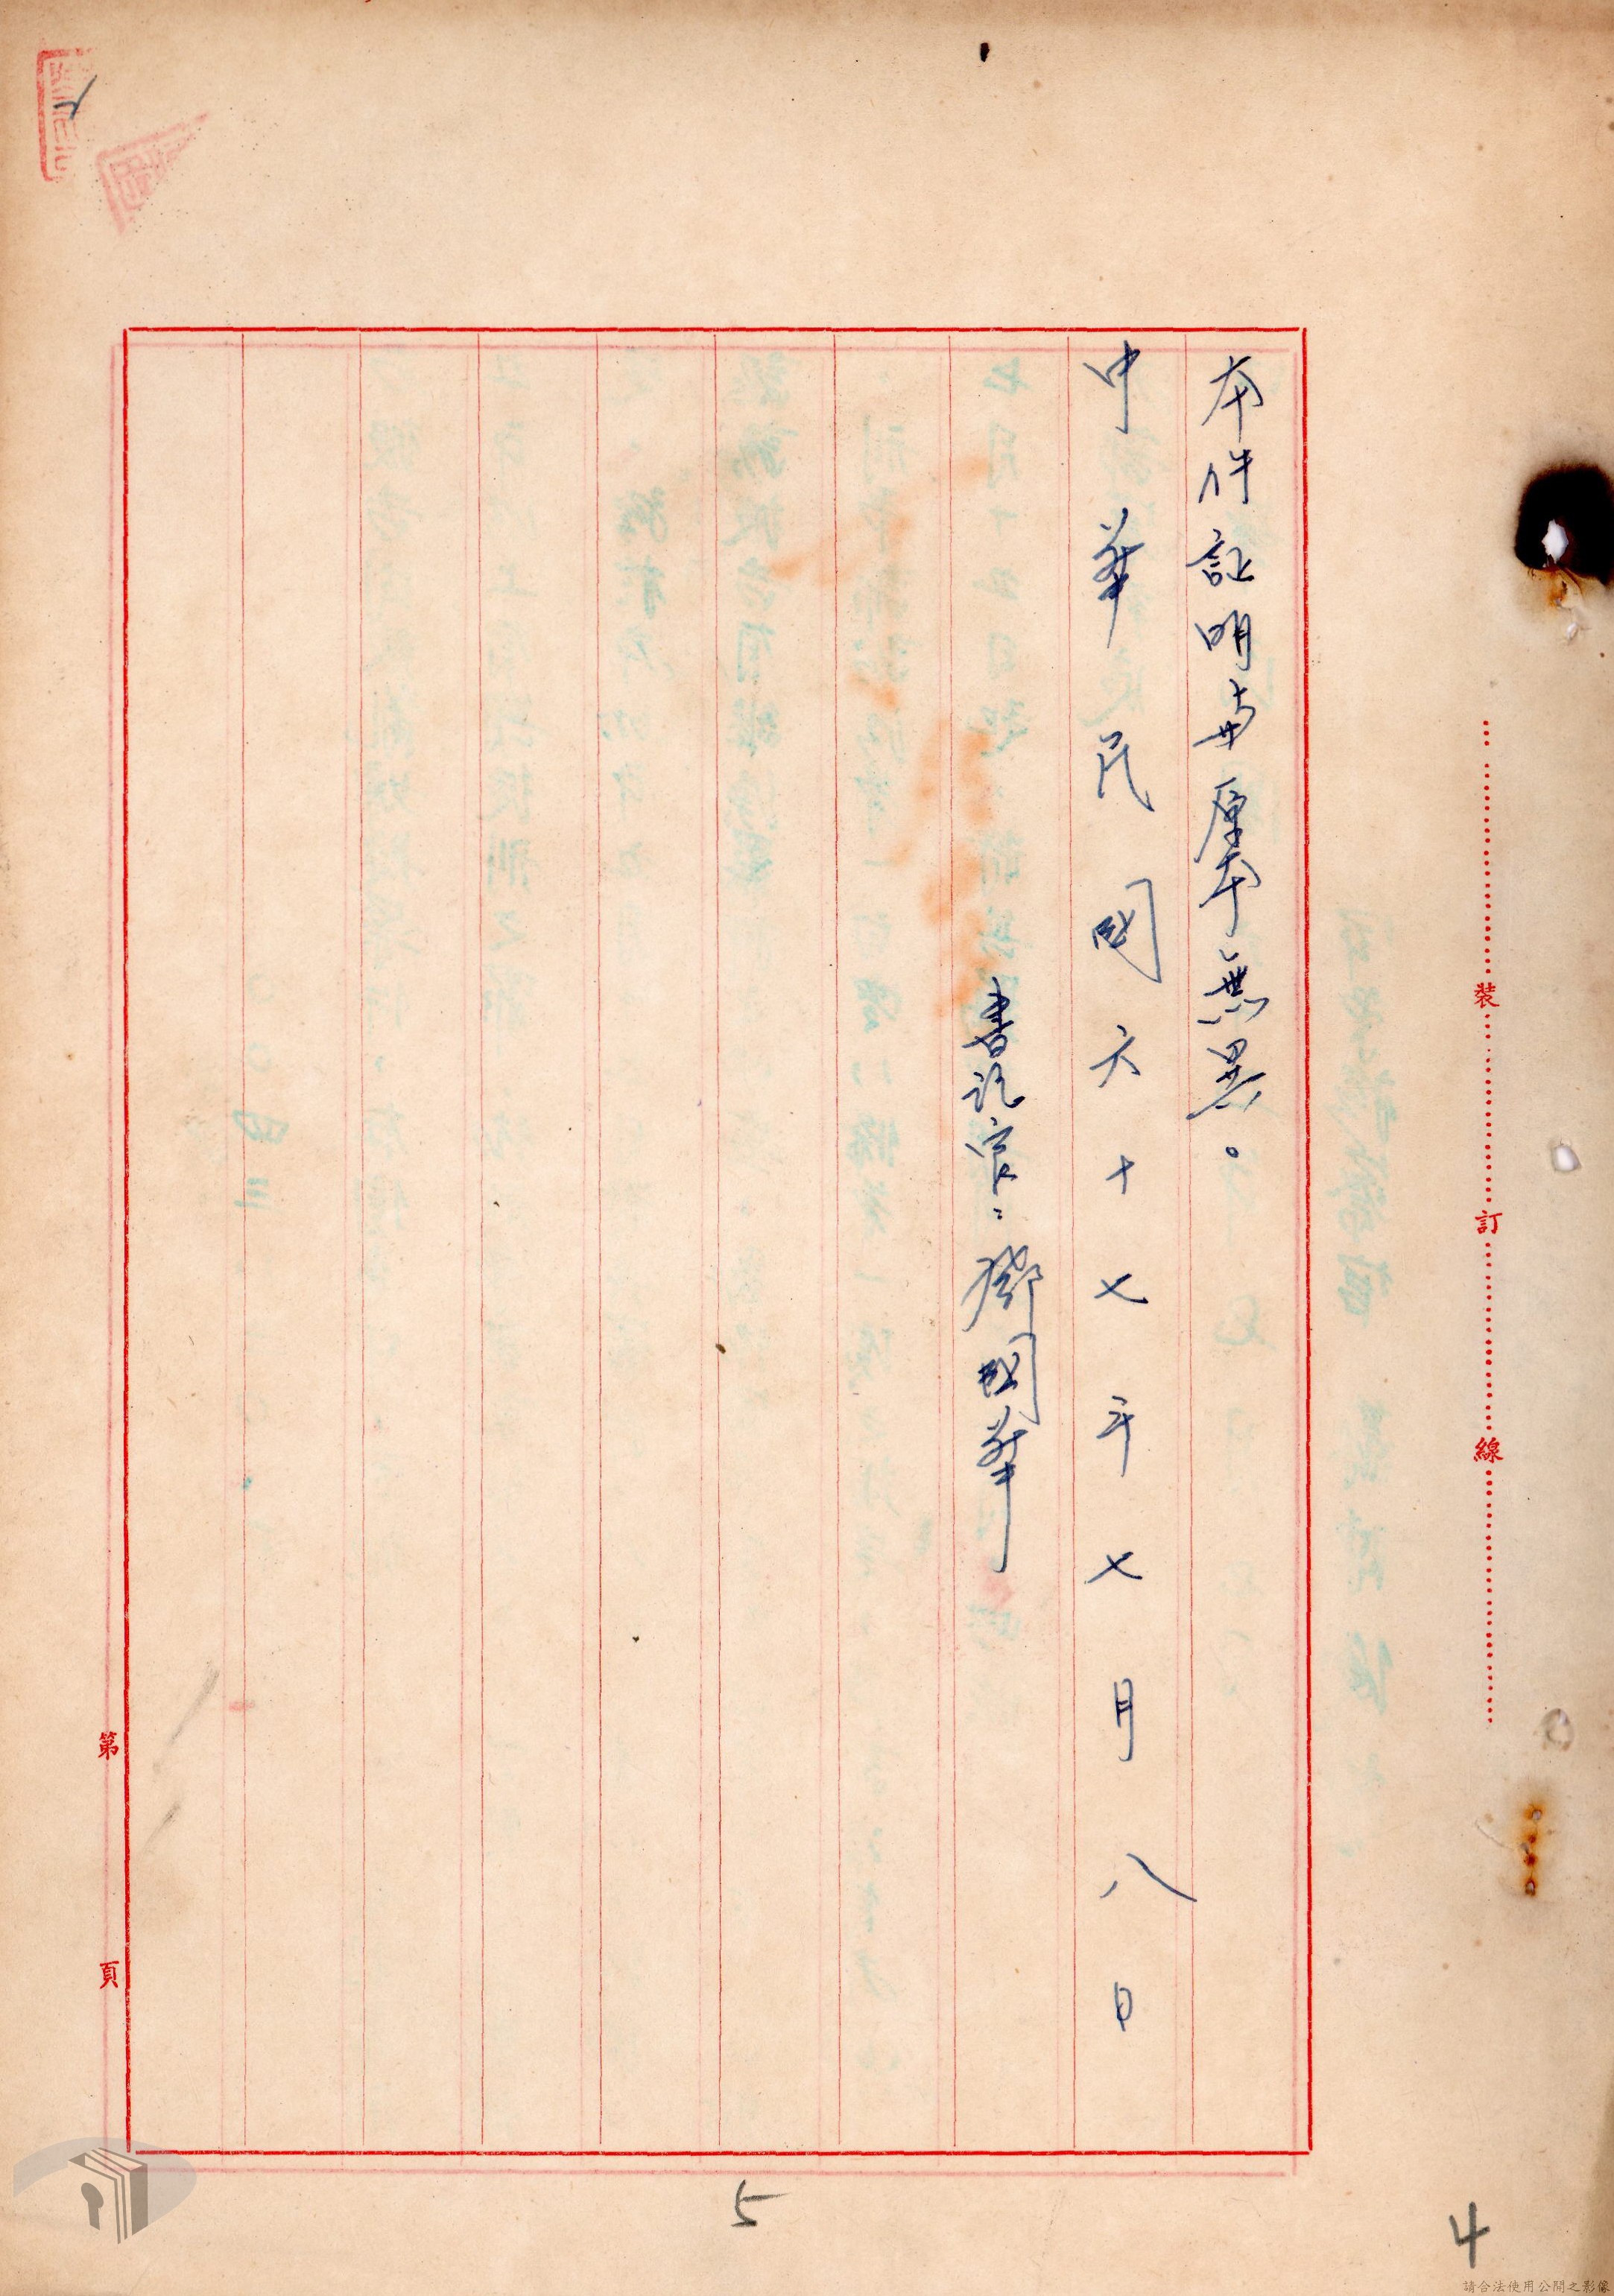 本件証明与原本無異。
中華民國六十七年七月八日
書記官：鄧國華
裝訂線
第 頁
5
4
請合法使用公開之影像